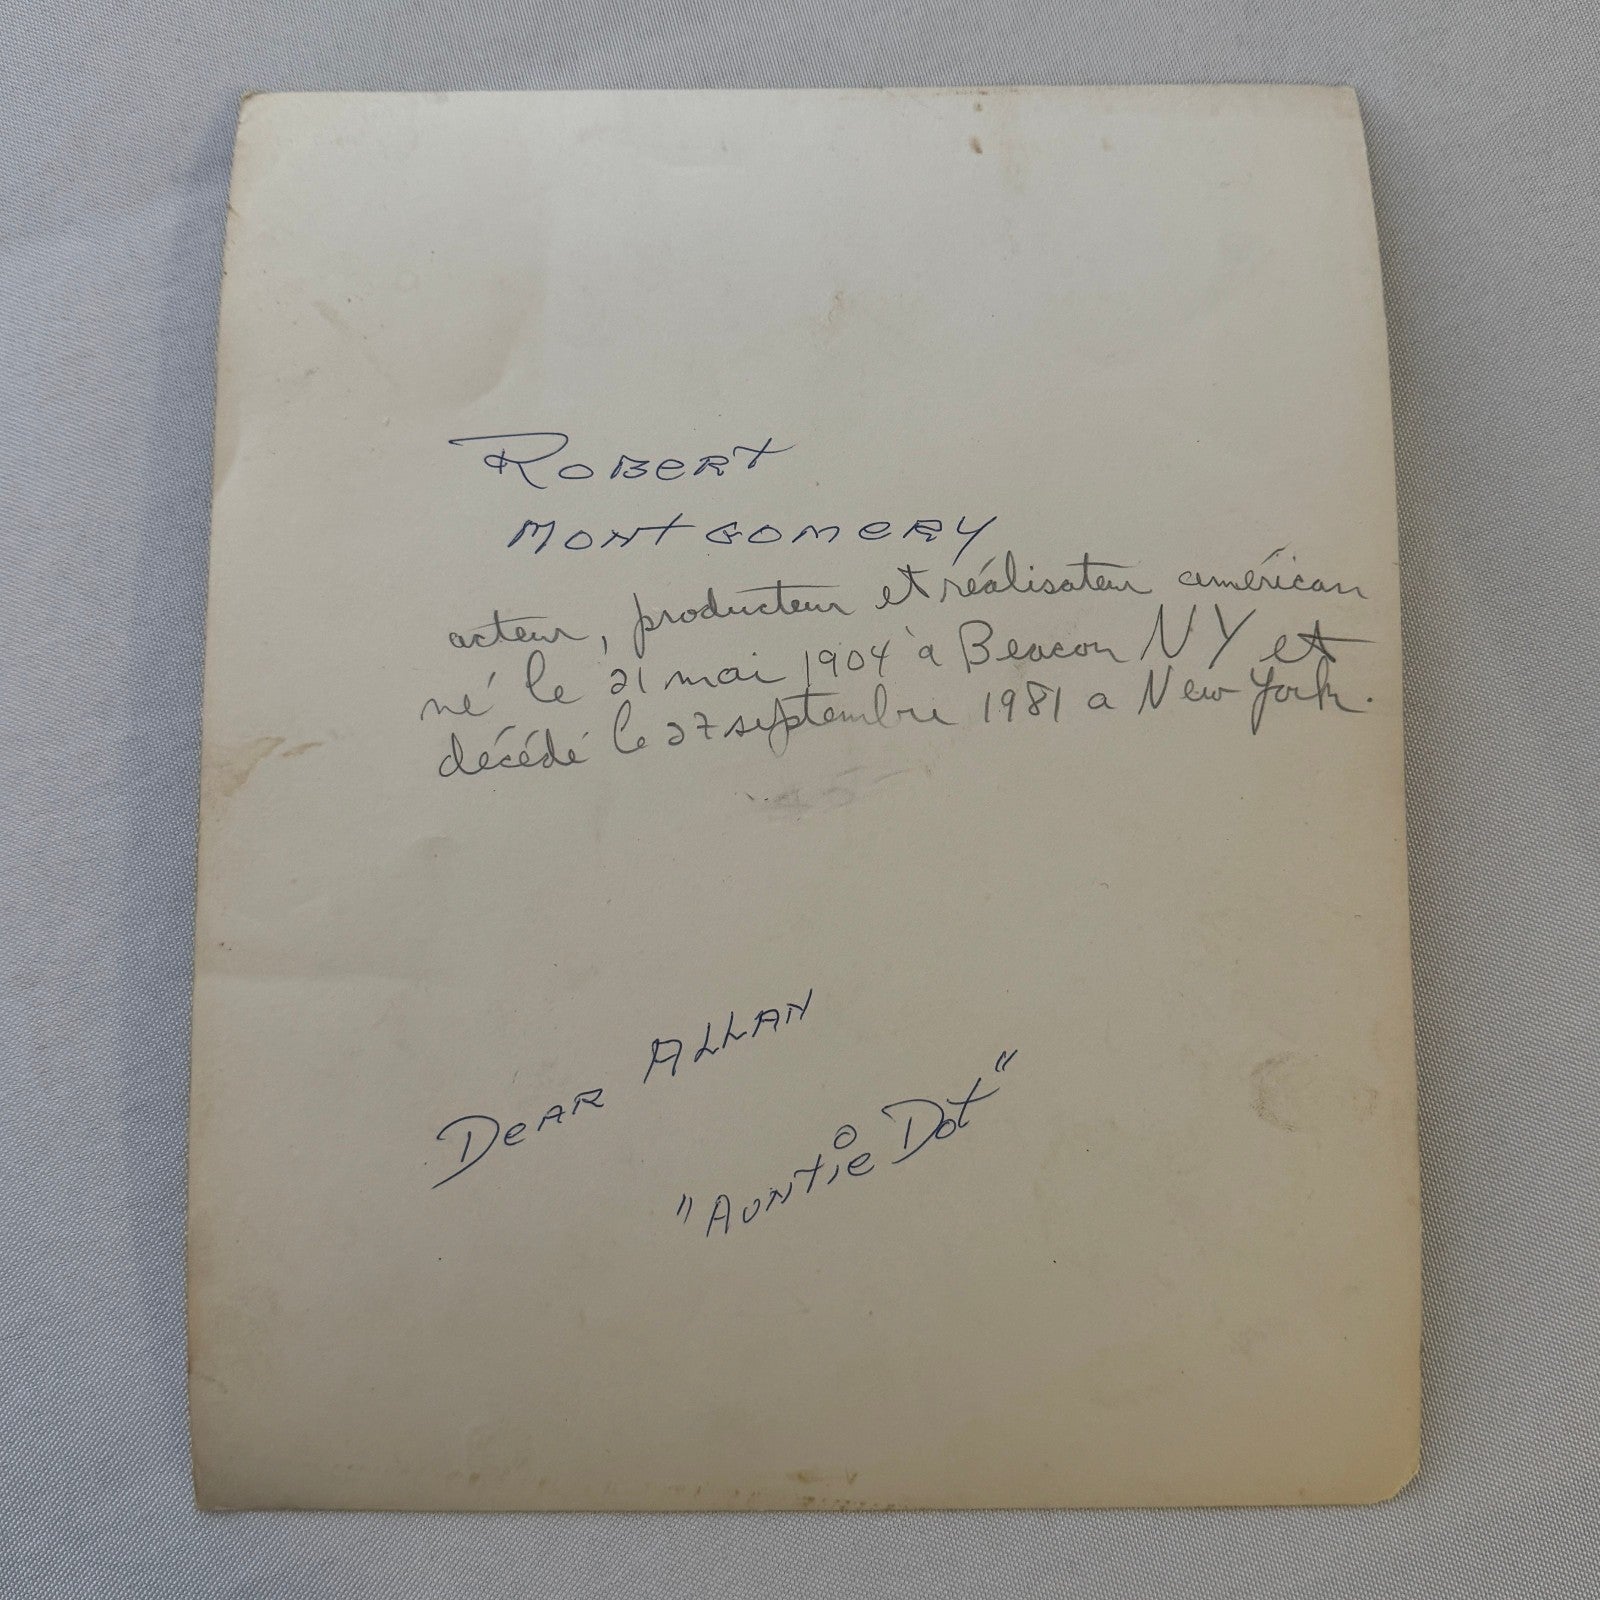 ROBERT
MONTGOMERY
acteur, producteur et réalisateur américan
né le 21 mai 1904 à Beacon NY et
décédé le 27 septembre 1981 a New York.
DeAR ALLAN
"AUNTie Dot"